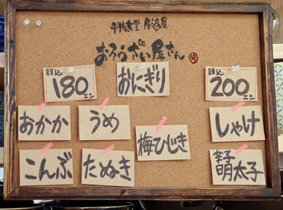 居酒屋
おそうざい屋さん
税込
180エン
おにぎり
税込
200エン
おかか
うめ
梅ひじき
しゃけ
こんぶ
たぬき
明太子